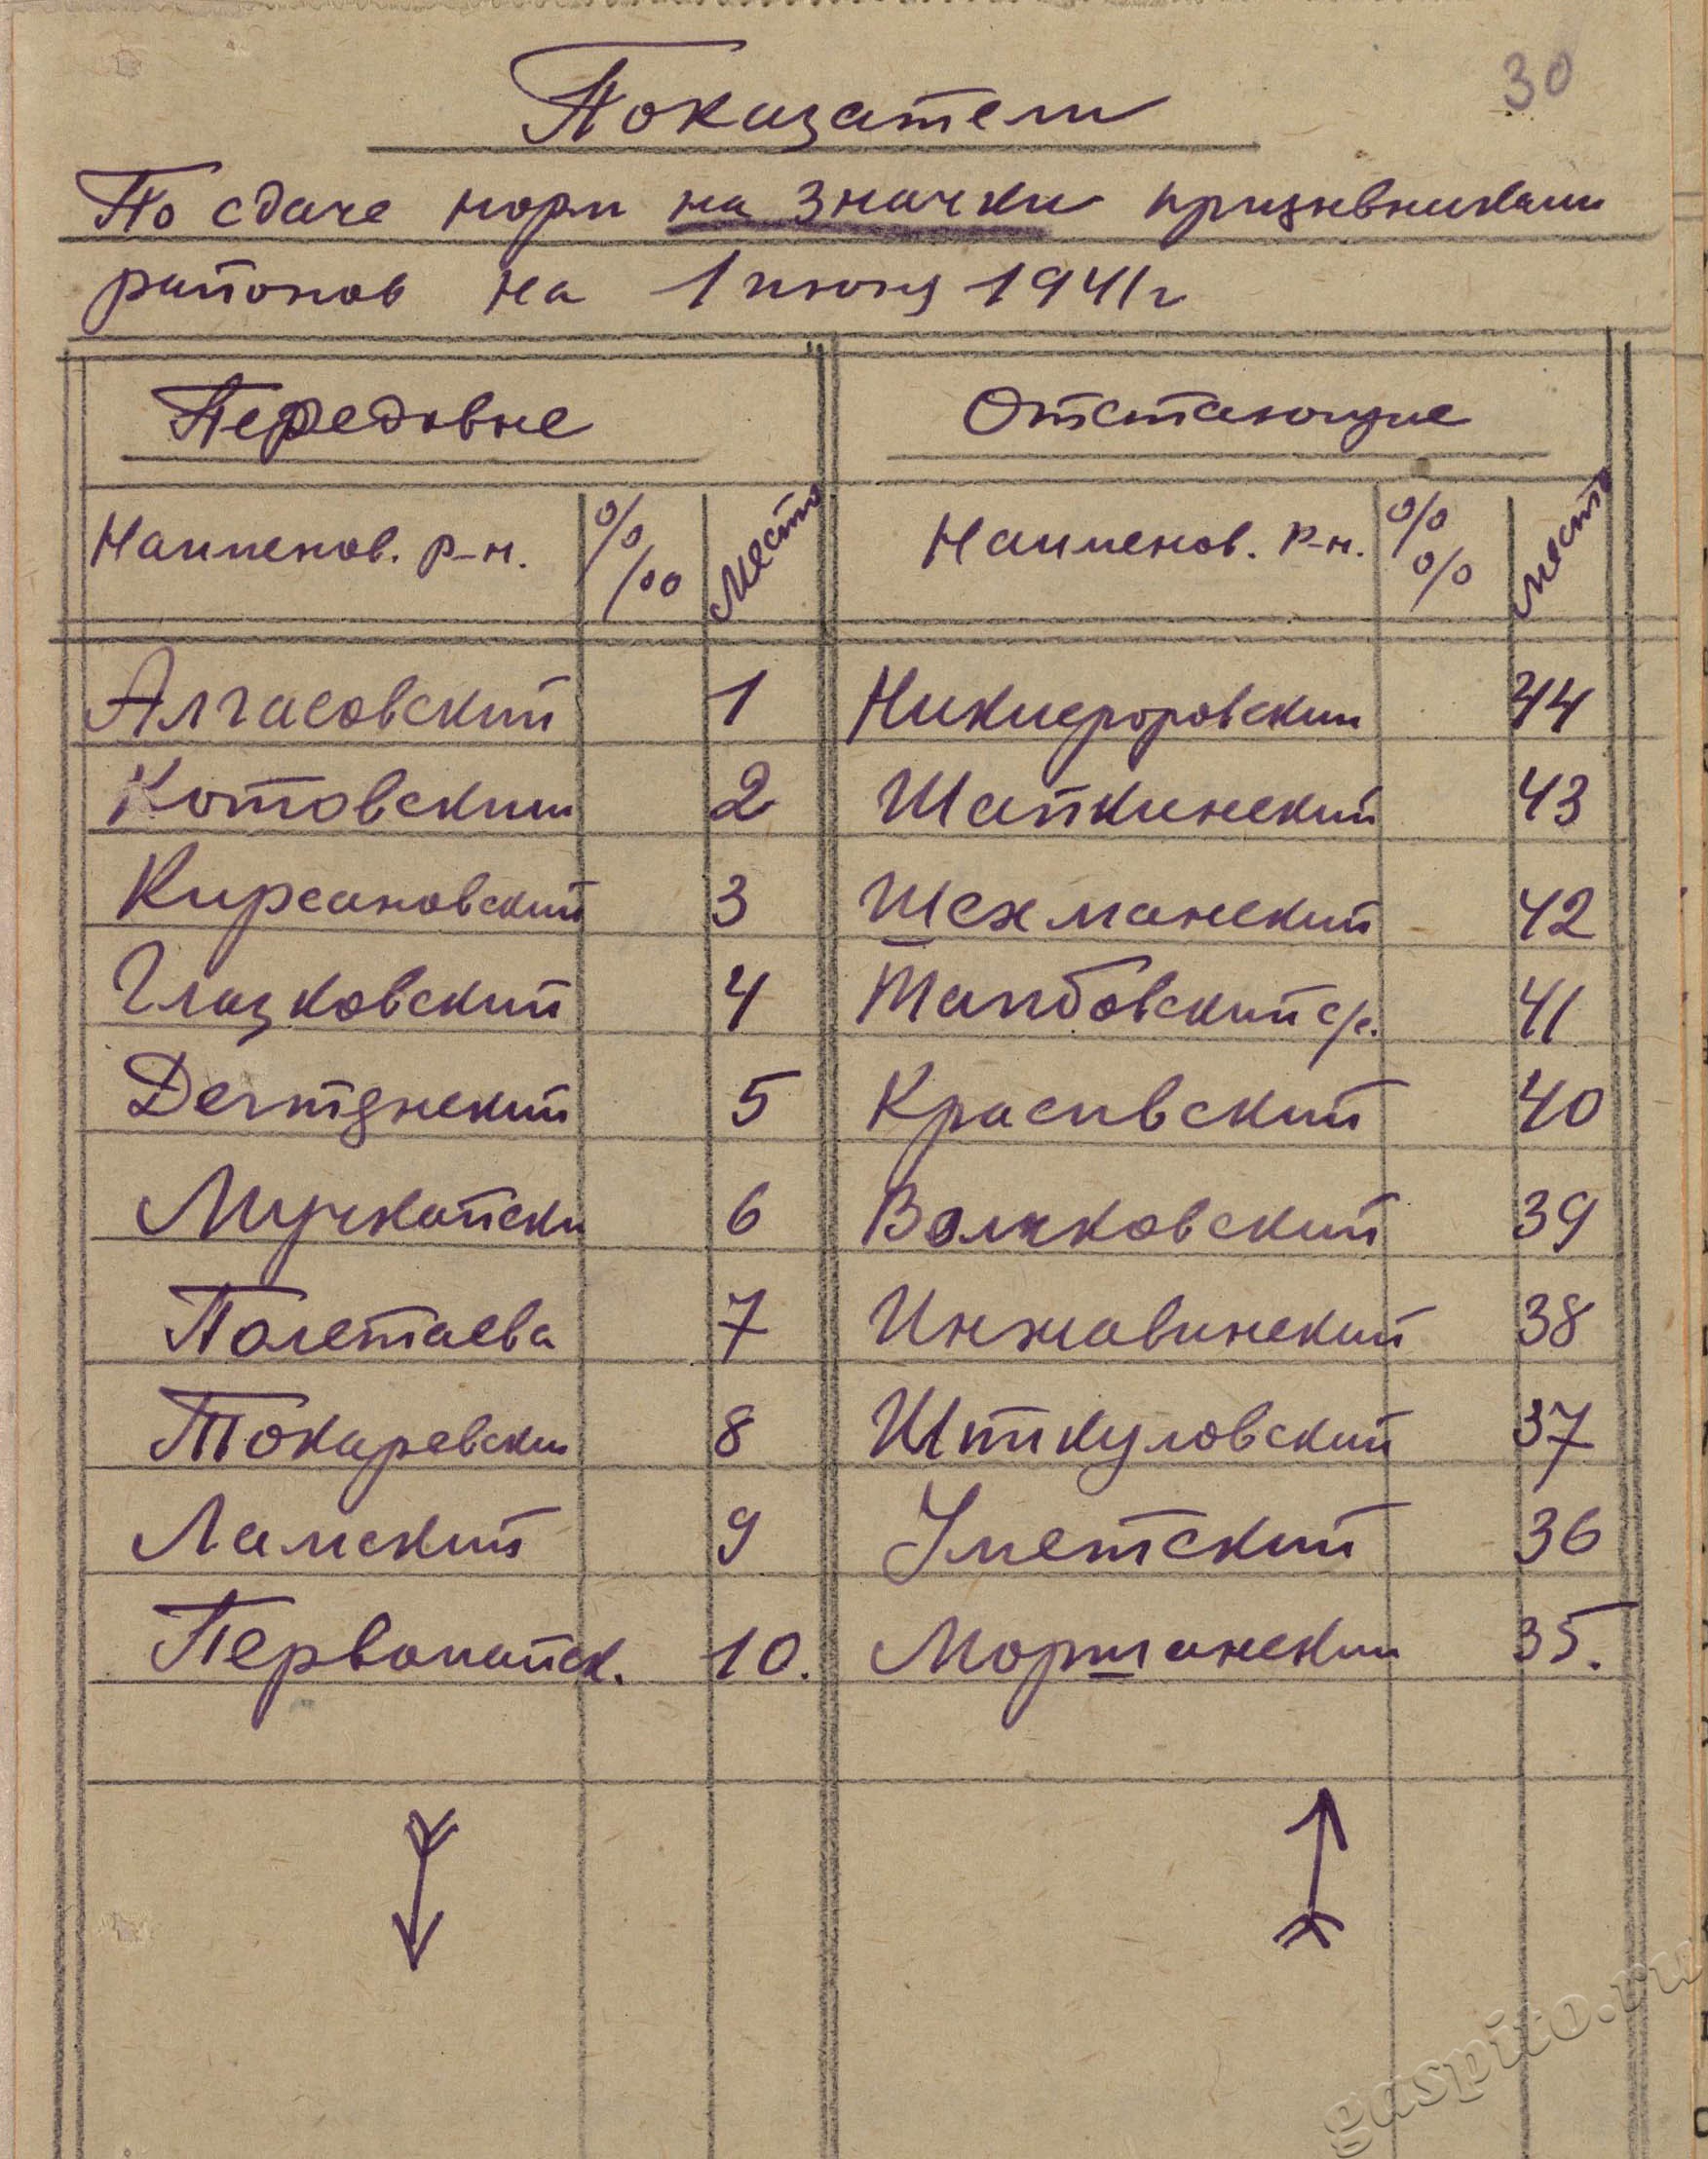 30
Показатели
По сдаче норм на значки призывниками
районов на 1 июня 1941 г
Передовые Отстающие
Наименов. р-н. % % место Наименов. р-н. % % место
Алгасовский 1 Никифоровский 44
Котовский 2 Шапкинский 43
Кирсановский 3 Шехманский 42
Глазковский 4 Тамбовский с/с. 41
Дегтянский 5 Красивский 40
Мучкапски 6 Волчковский 39
Полетаева 7 Инжавинский 38
Токаревский 8 Шпикуловский 37
Ламский 9 Уметский 36
Первомайск. 10. Моршанский 35.
gaspito.ru